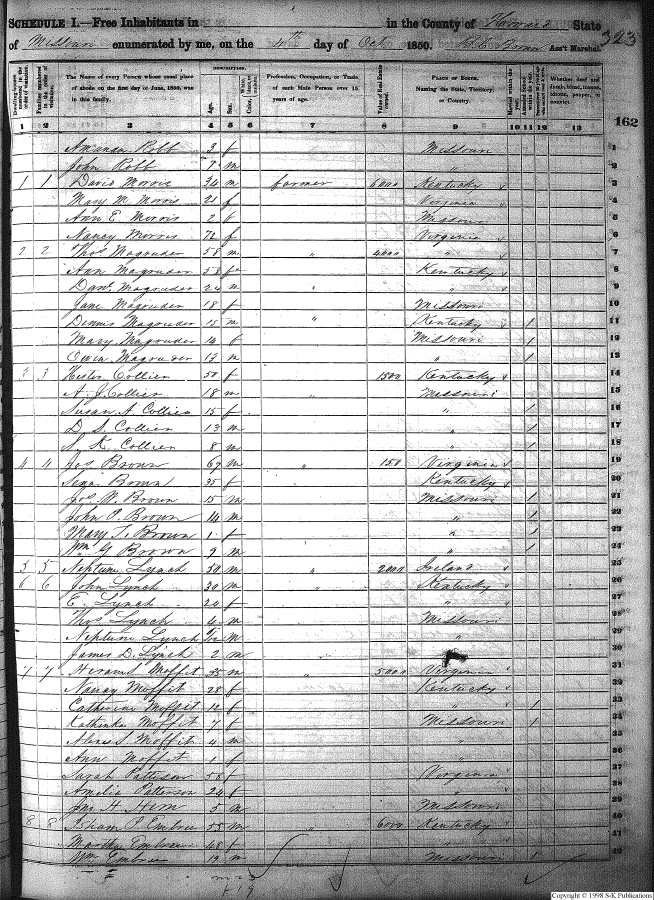 SCHEDULE I.—Free Inhabitants in in the County of Howard State
of Missouri enumerated by me, on the 4th day of Oct 1850. Ass't Marshal.
323
DESCRIPTION.
Dwelling-houses numbered in the order of visitation.
Families numbered in the order of visitation.
The Name of every Person whose usual place of abode on the first day of June, 1850, was in this family.
Age.
Sex.
Color, White, black, or mulatto.
Profession, Occupation, or Trade of each Male Person over 15 years of age.
Value of Real Estate owned.
PLACE OF BIRTH. Naming the State, Territory, or Country.
Married within the year.
Attended School within the year.
Whether deaf and dumb, blind, insane, idiotic, pauper, or convict.
162
1 2 3 4 5 6 7 8 9 10 11 12 13
Amanda Robb 3 f Missouri 1
John Robb 7 m " 2
1 1 David Morris 34 m farmer 6000 Kentucky 3
Mary M. Morris 21 f Virginia 4
Ann E Morris 2 f Missouri 5
Nancy Morris 72 f Virginia 6
2 2 Thos Magruder 58 m " 4000 " 7
Ann Magruder 58 f Kentucky 8
Danl Magruder 24 m " " 9
Jane Magruder 18 f Missouri 10
Dennis Magruder 15 m " Kentucky 1 11
Mary Magruder 14 f Missouri 1 12
Owen Magruder 13 m " 1 13
3 3 Hester Collier 50 f 1500 Kentucky 14
A. J. Collier 18 m " Missouri 15
Susan A Collier 15 f " 1 16
D S. Collier 13 m " 1 17
K. Collier 8 m " 1 18
4 4 Jos Brown 69 m " 150 Virginia 19
Brown 35 f Kentucky 20
Jos W. Brown 15 m Missouri 1 21
John P. Brown 14 m " 1 22
Mary T. Brown 1 f " 1 23
Wm G Brown 9 m " 1 24
5 5 Neptune Lynch 30 m " 2000 Ireland 25
6 6 John Lynch 30 m " Kentucky 26
E. Lynch 24 f " 27
Thos Lynch 4 m Missouri 28
Neptune Lynch m " 29
James D. Lynch 2 m
7 7 Hiram Moffit 35 m " 5000 Virginia 31
Nancy Moffit 28 f Kentucky 32
Catherine Moffit 12 f " 1 33
Moffit 7 f Missouri 1 34
Moffit 4 m " 35
Ann Moffit 1 f " 36
Sarah Patterson 58 f Virginia 37
Amelia Patterson 24 f " 38
Jno. H. Hern 5 m Missouri 39
8 8 Isham P. Embree 55 m " 6000 Kentucky
Martha Embree 48 f " 41
Wm Embree 19 m Missouri 1
Copyright © 1998 S-K Publications